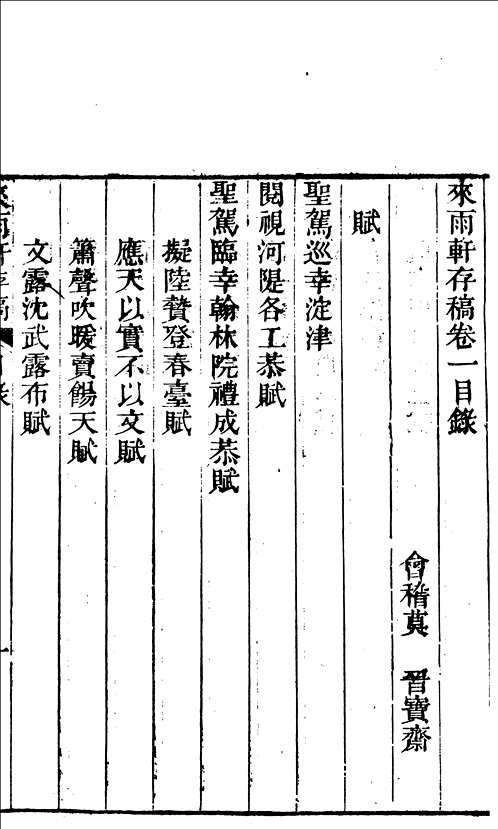 來雨軒存稿卷一目錄
會稽莫　晉寶齋
賦
聖駕巡幸淀津
閱視河隄各工恭賦
聖駕臨幸翰林院禮成恭賦
擬陸贄登春臺賦
應天以實不以文賦
簫聲吹暖賣餳天賦
文露沈武露布賦
來雨軒存稿 目錄 一